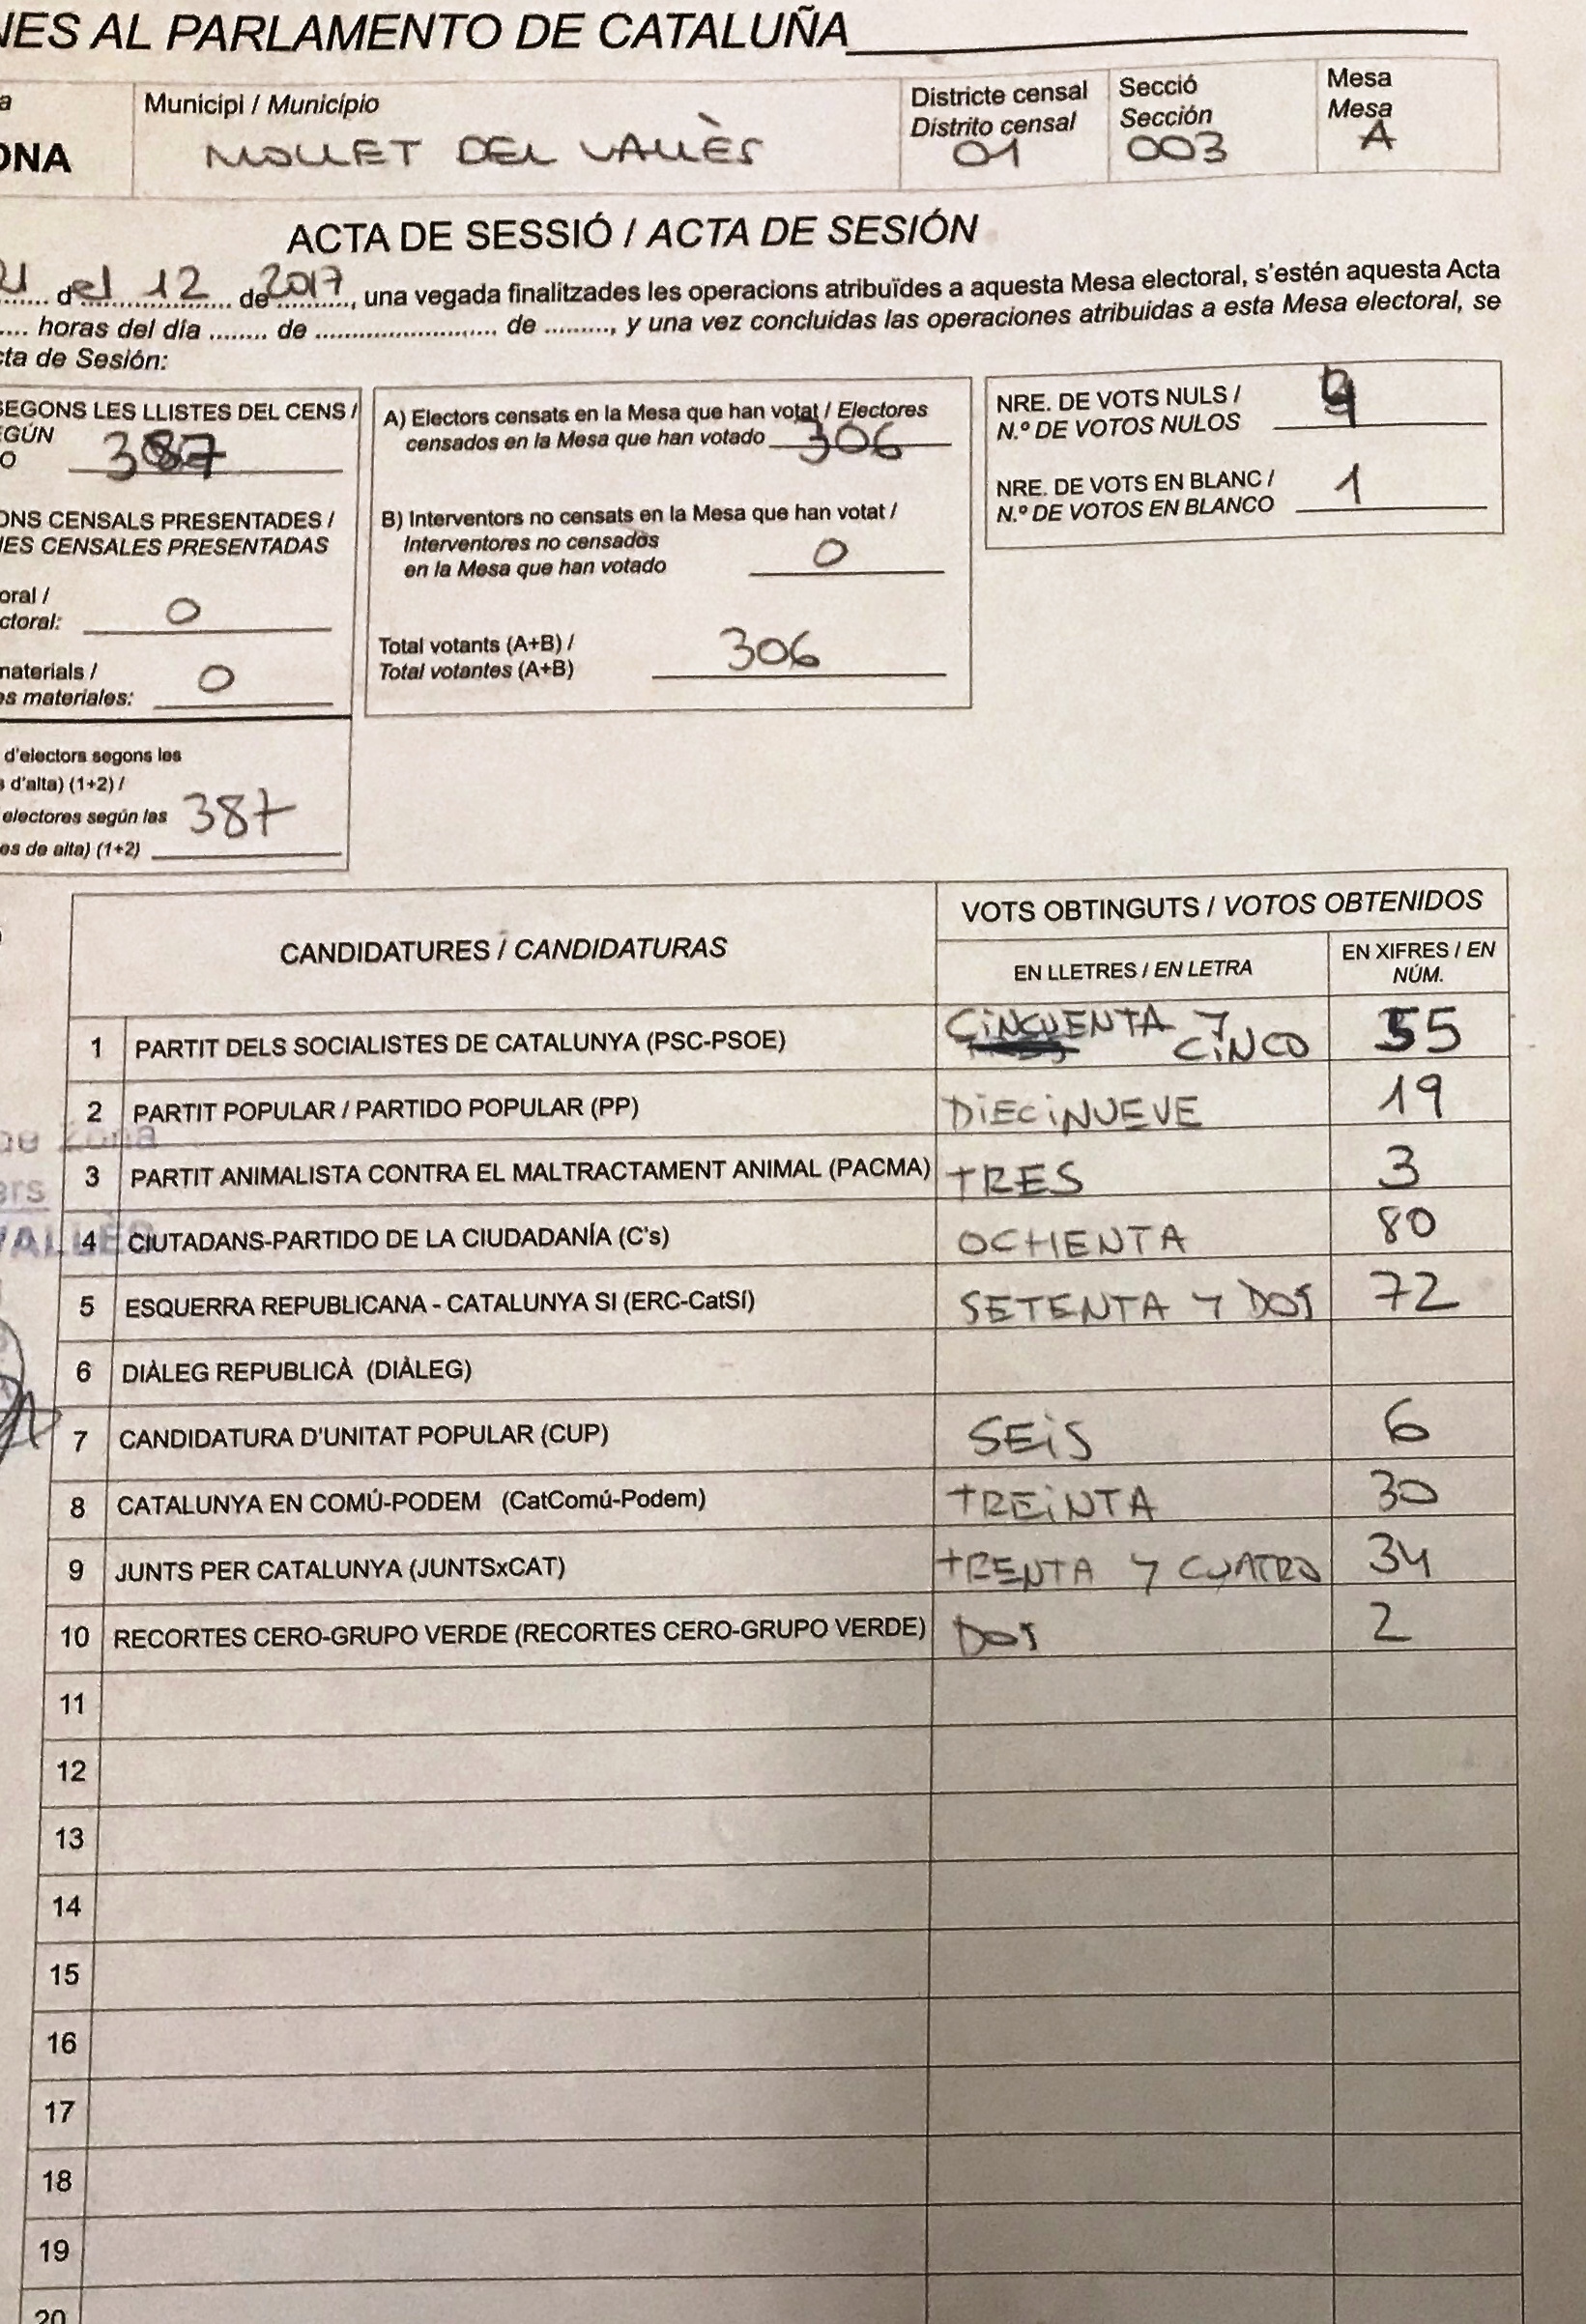 NES AL PARLAMENTO DE CATALUÑA
a
ONA
Municipi / Municipio
MOLLET DEL VALLÈS
Districte censal
Distrito censal
01
Secció
Sección
003
Mesa
Mesa
A
ACTA DE SESSIÓ / ACTA DE SESIÓN
21 del 12 de 2017, una vegada finalitzades les operacions atribuïdes a aquesta Mesa electoral, s'estén aquesta Acta
.... horas del día ........ de .......................... de ........., y una vez concluidas las operaciones atribuidas a esta Mesa electoral, se
cta de Sesión:
SEGONS LES LLISTES DEL CENS /
EGÚN
O 387
ONS CENSALS PRESENTADES /
NES CENSALES PRESENTADAS
oral /
ctoral: 0
materials /
es materiales: 0
d'electors segons les
s d'alta) (1+2) /
electores según las 387
es de alta) (1+2)
A) Electors censats en la Mesa que han votat / Electores
censados en la Mesa que han votado 306
B) Interventors no censats en la Mesa que han votat /
Interventores no censados
en la Mesa que han votado 0
Total votants (A+B) /
Total votantes (A+B) 306
NRE. DE VOTS NULS /
N.º DE VOTOS NULOS
NRE. DE VOTS EN BLANC /
N.º DE VOTOS EN BLANCO 1
CANDIDATURES / CANDIDATURAS
VOTS OBTINGUTS / VOTOS OBTENIDOS
EN LLETRES / EN LETRA
EN XIFRES / EN
NÚM.
1 PARTIT DELS SOCIALISTES DE CATALUNYA (PSC-PSOE) CINCUENTA Y CINCO 55
2 PARTIT POPULAR / PARTIDO POPULAR (PP) DIECINUEVE 19
de Zona
3 PARTIT ANIMALISTA CONTRA EL MALTRACTAMENT ANIMAL (PACMA) TRES 3
ers
4 CIUTADANS-PARTIDO DE LA CIUDADANÍA (C's) OCHENTA 80
VALLÈS
5 ESQUERRA REPUBLICANA - CATALUNYA SI (ERC-CatSí) SETENTA Y DOS 72
6 DIÀLEG REPUBLICÀ (DIÀLEG)
7 CANDIDATURA D'UNITAT POPULAR (CUP) SEIS 6
8 CATALUNYA EN COMÚ-PODEM (CatComú-Podem) TREINTA 30
9 JUNTS PER CATALUNYA (JUNTSxCAT) TRENTA Y CUATRO 34
10 RECORTES CERO-GRUPO VERDE (RECORTES CERO-GRUPO VERDE) DOS 2
11
12
13
14
15
16
17
18
19
20